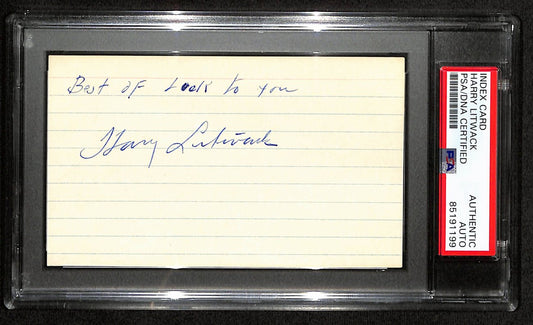 Best of Luck to you
Harry Litwack
INDEX CARD
HARRY LITWACK
PSA/DNA CERTIFIED
PSA
AUTHENTIC
AUTO
85191199